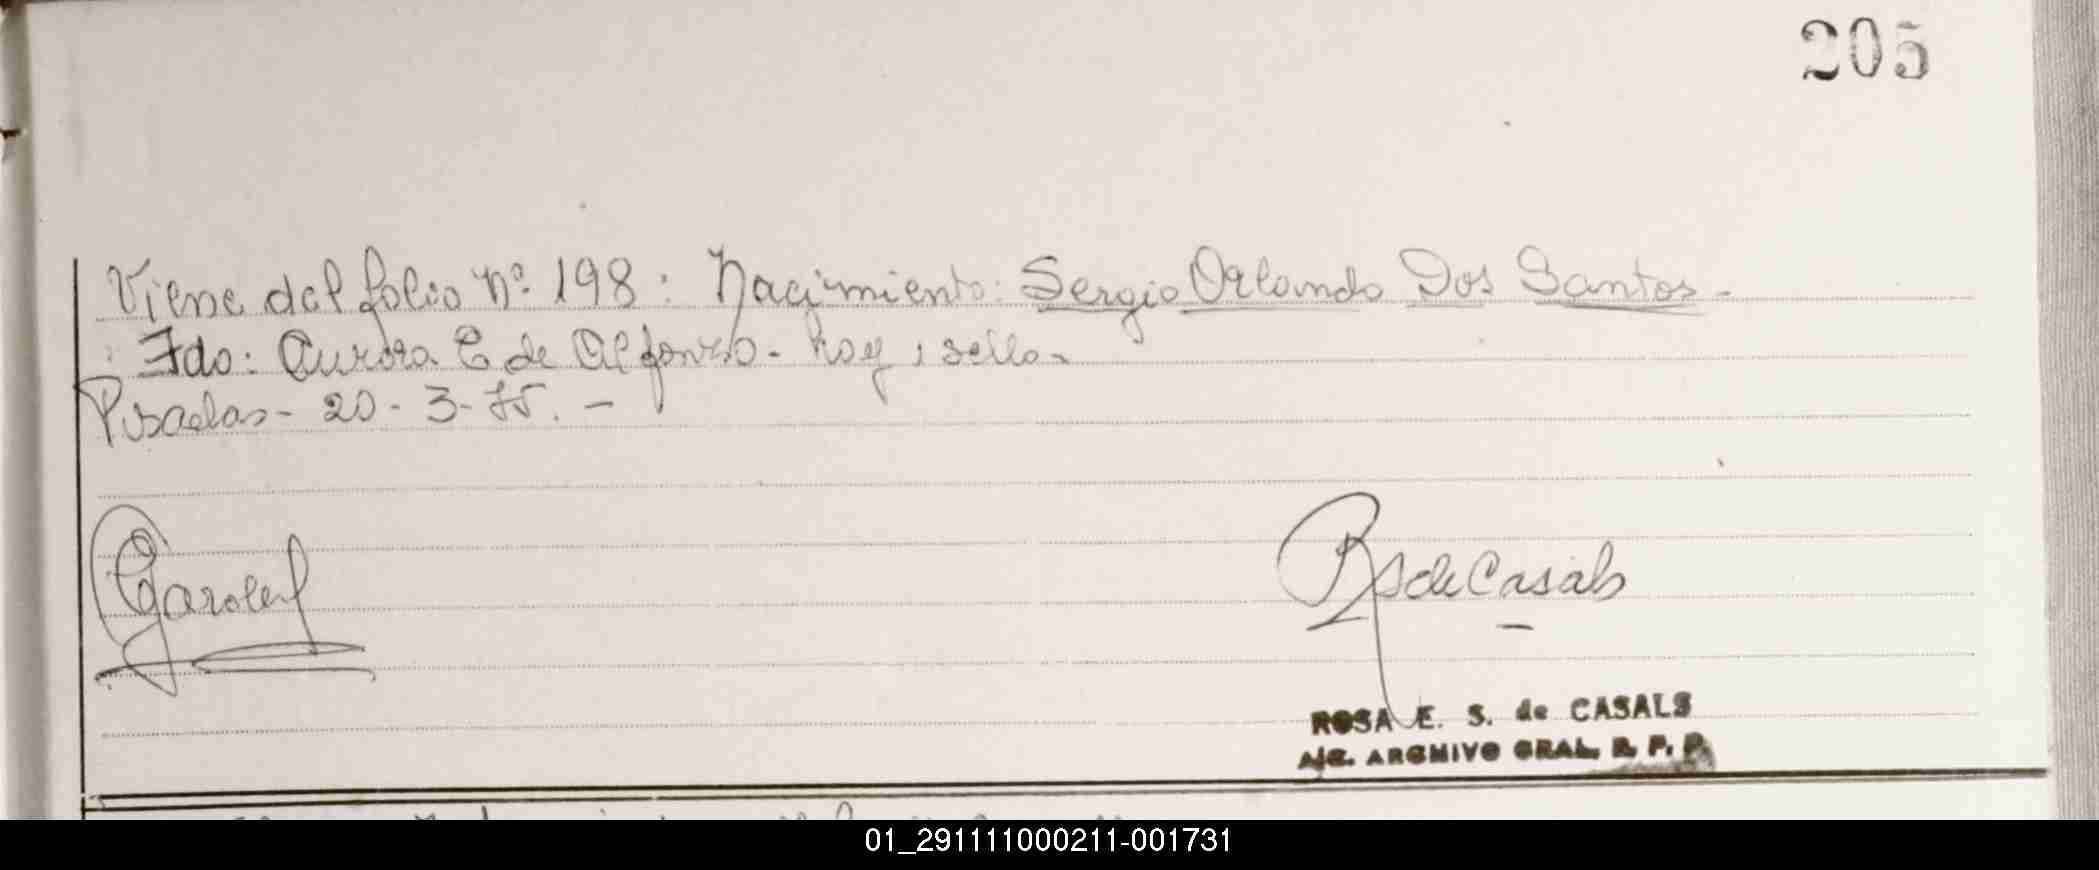 205
Viene del folio Nº 198: Nacimiento: Sergio Orlando Dos Santos-
Fdo: Aurora C de Alfonzo- hay, sello-
Posadas- 20-3-75.-
RS de Casals
ROSA E. S. de CASALS
A/C. ARCHIVO GRAL. R. P. P.
01_291111000211-001731